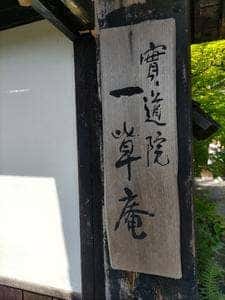 實道院
一草庵